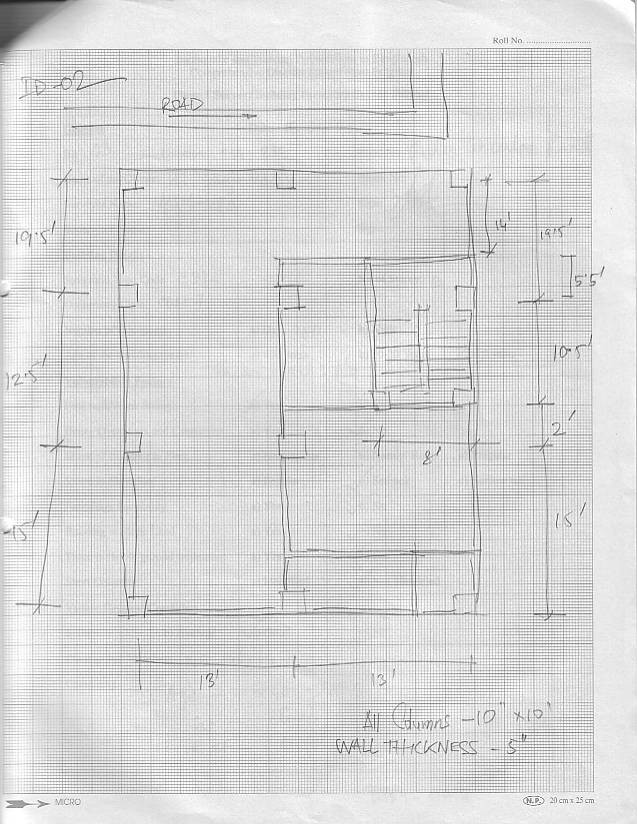 Roll No.
ID-02
ROAD
19.5'
14'
19.5'
5.5'
12.5'
10.5'
2'
8'
15'
15'
13'
13'
All Columns - 10" x 10'
WALL THICKNESS - 5"
MICRO
N.P. 20 cm x 25 cm